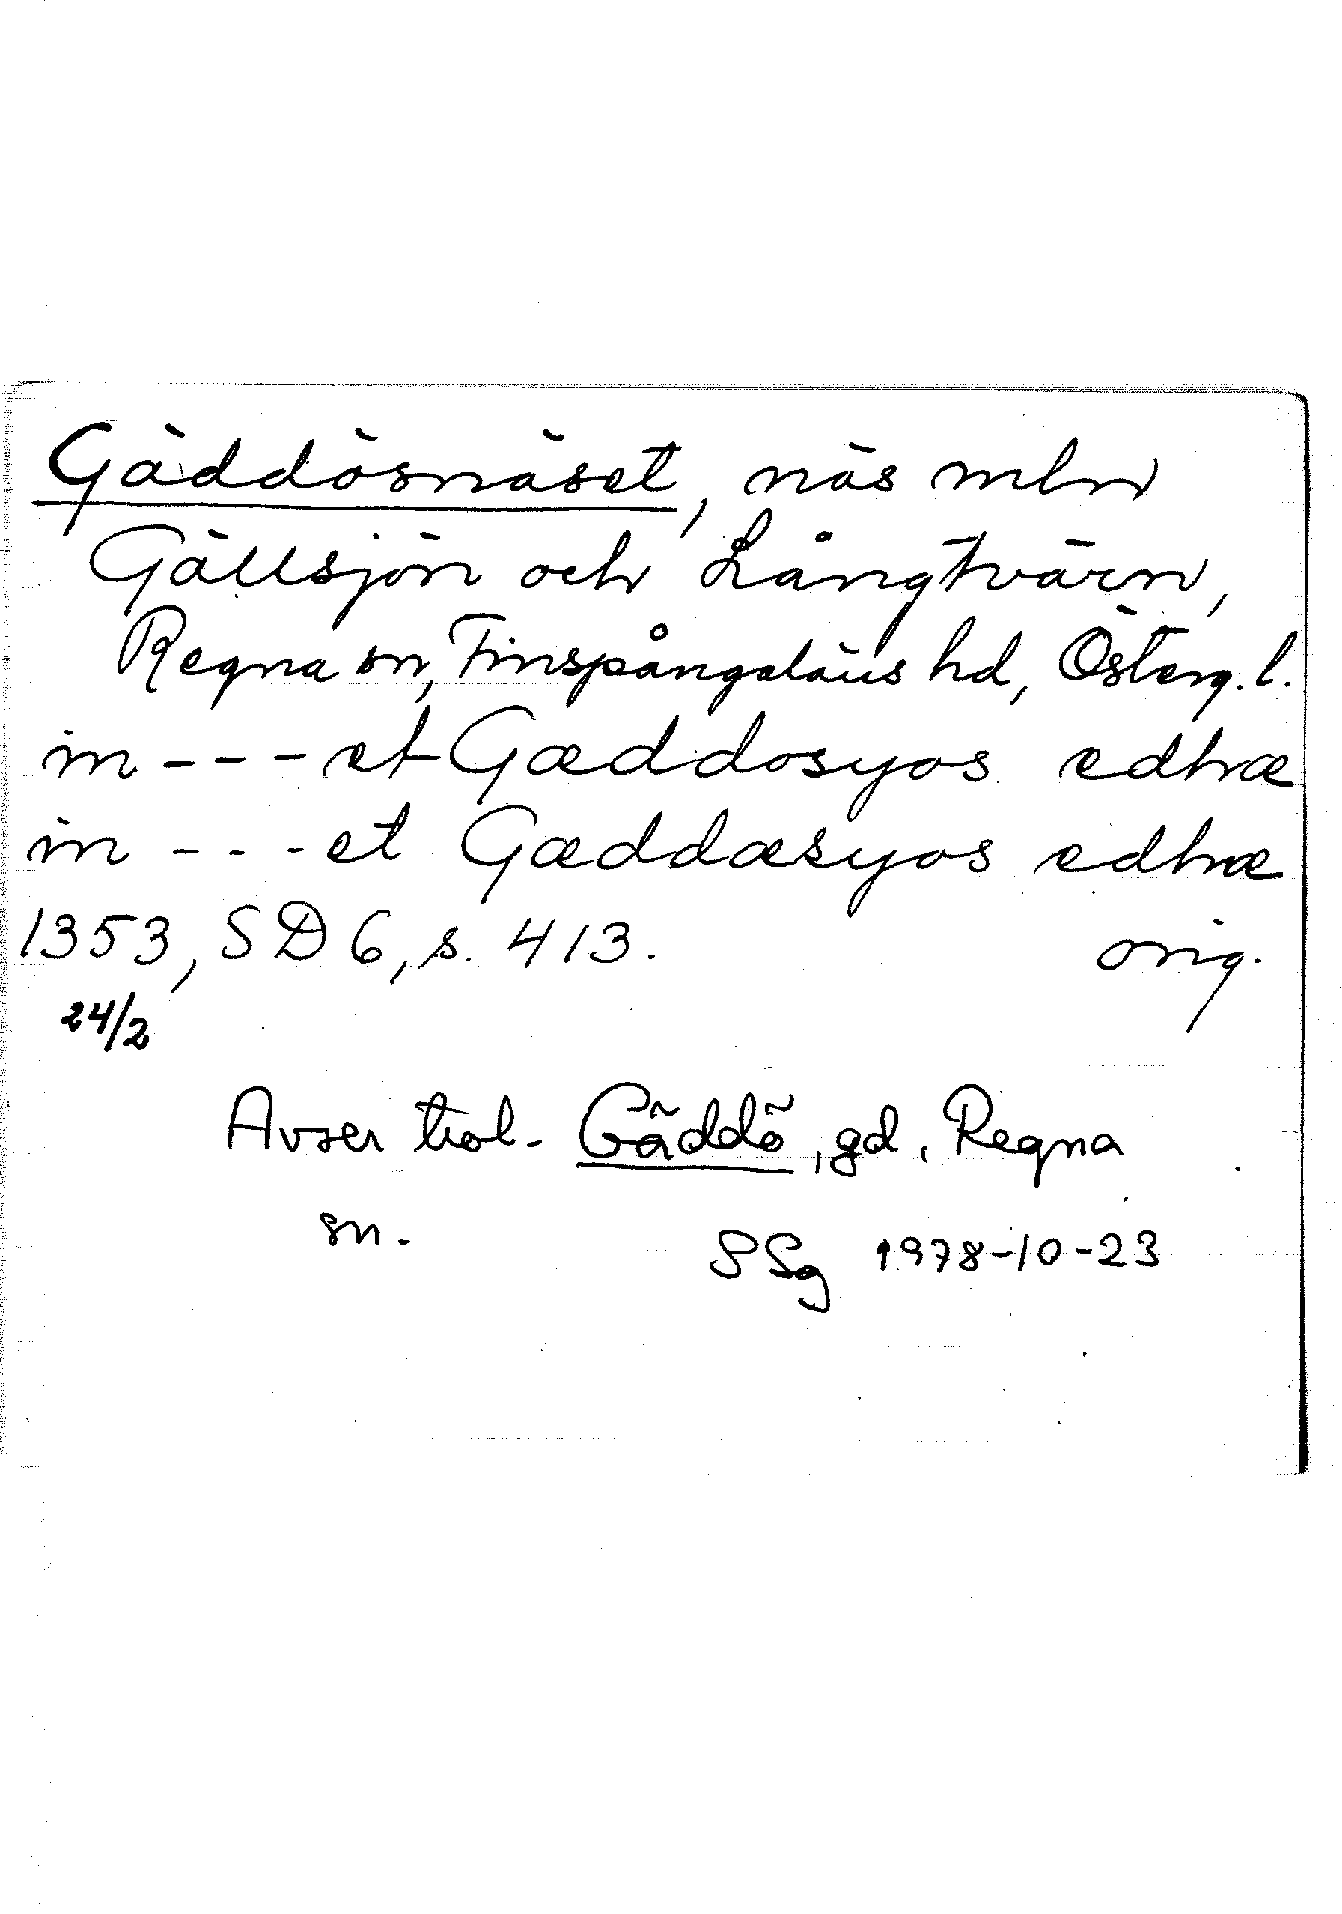 Gäddösnäset, näs mln
Gällsjön och Långtvärn,
Regna sn, Finspångaläns hd, Österg. l.
in --- et Gæddosyos edhræ
in --- et Gæddæsyos edhræ
1353, SD 6, s. 413. orig.
24/2
Avser trol. Gäddö, gd, Regna
sn.
SSg 1978-10-23